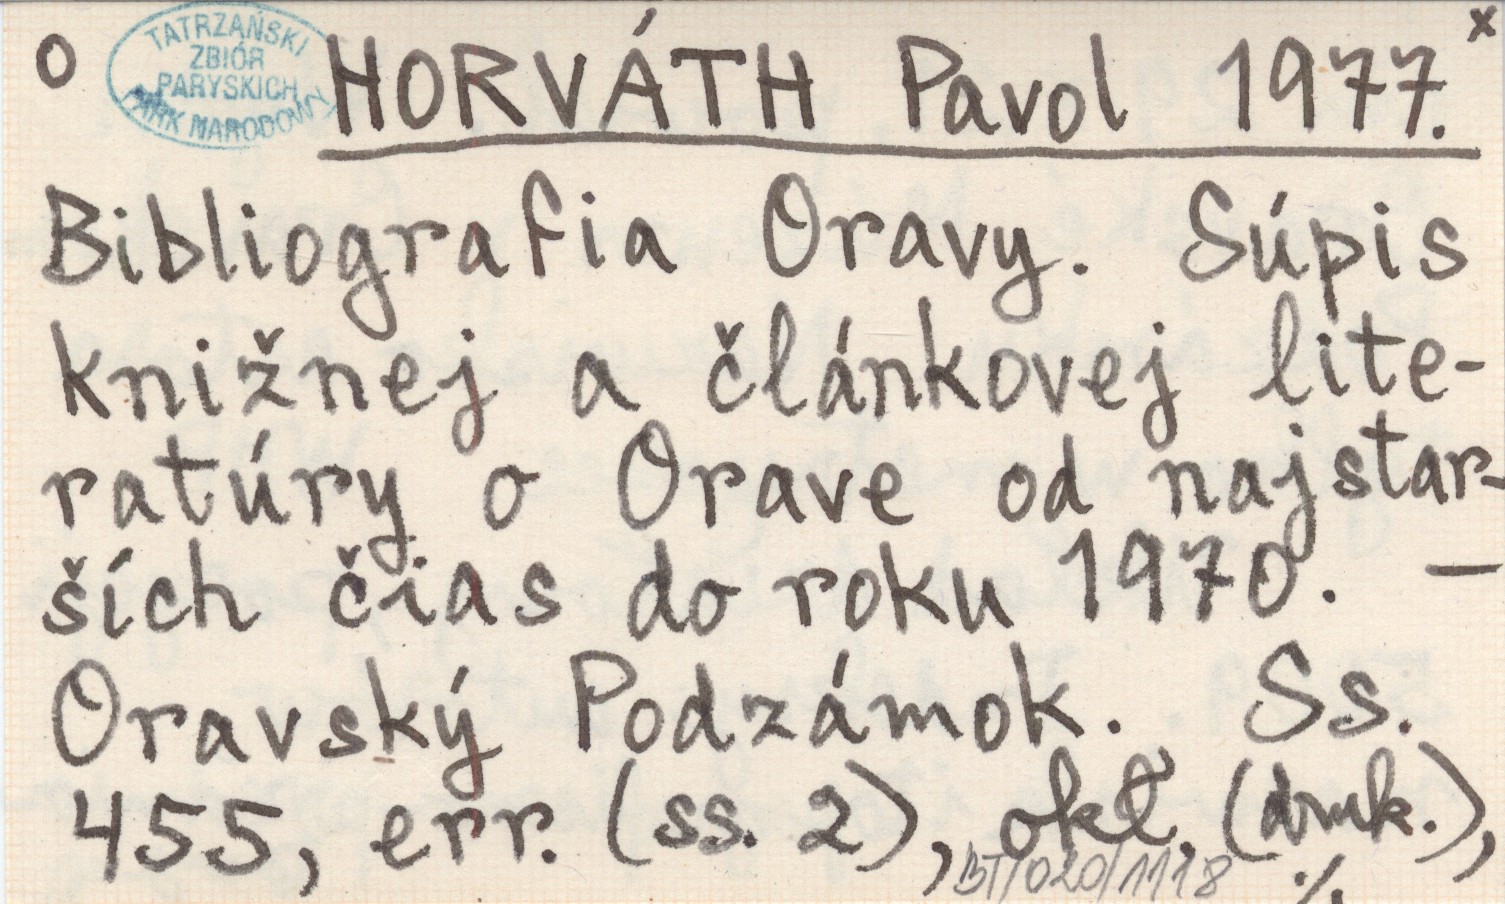 o TATRZAŃSKI
ZBIÓR
PARYSKICH
PARK NARODOWY
HORVÁTH Pavol 1977. x
Bibliografia Oravy. Súpis
knižnej a článkovej lite-
ratúry o Orave od najstar-
ších čias do roku 1970. —
Oravský Podzámok. Ss.
455, err. (ss. 2), okł. (druk.),
BT/020/1118 ./.